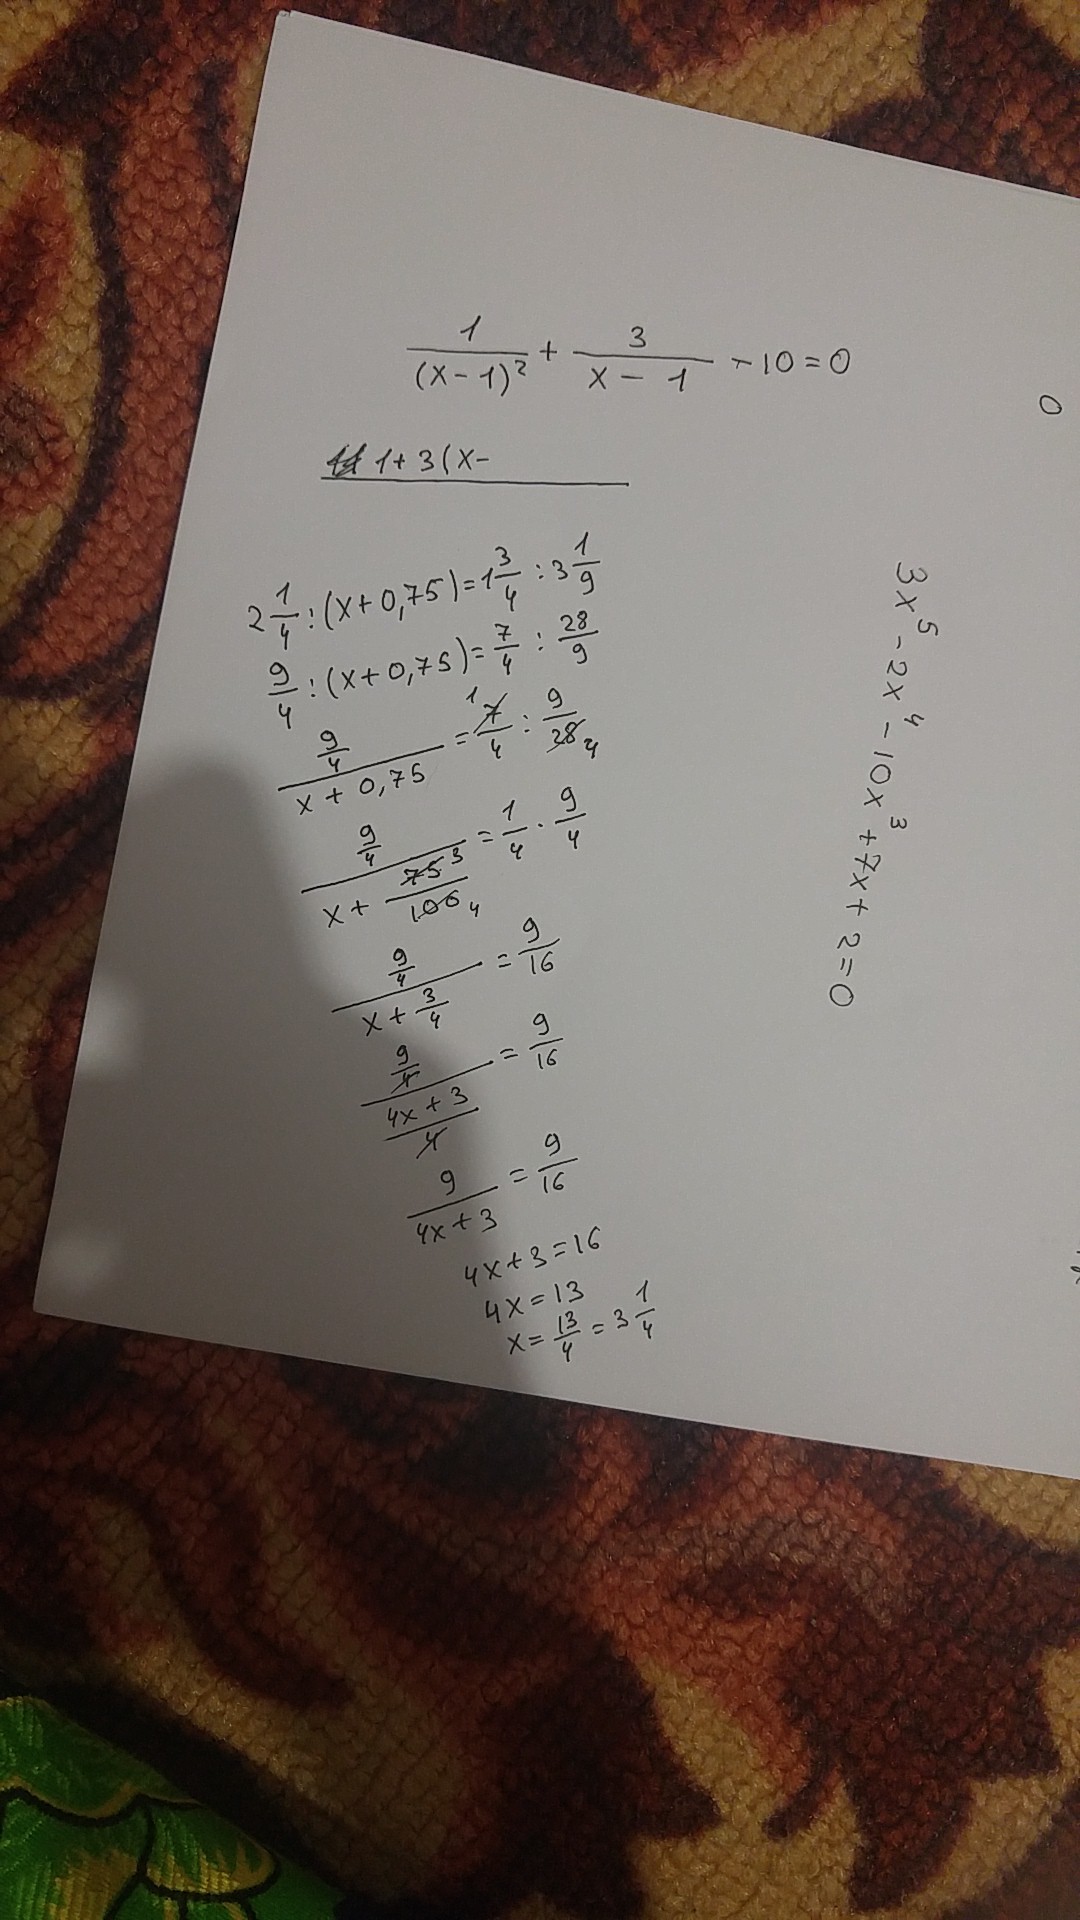 1/(x-1)² + 3/(x-1) - 10 = 0
1+3(x-
2 1/4 : (x+0,75) = 1 3/4 : 3 1/9
9/4 : (x+0,75) = 7/4 : 28/9
(9/4)/(x+0,75) = 7/4 : 9/28 1 4
(9/4)/(x + 75/100) = 1/4 · 9/4 3 4
(9/4)/(x + 3/4) = 9/16
(9/4)/((4x+3)/4) = 9/16
9/(4x+3) = 9/16
4x+3=16
4x=13
x = 13/4 = 3 1/4
3x⁵ - 2x⁴ - 10x³ + 7x + 2 = 0
0